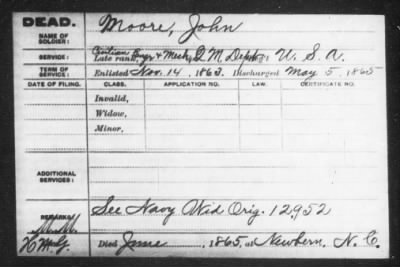 DEAD.
Moore, John
NAME OF
SOLDIER:
SERVICE:
Civilian Engr & Mech, Q M Dept U. S. A.
Late rank,
TERM OF
SERVICE:
Enlisted Nov. 14, 1863. Discharged May 5, 1865
DATE OF FILING. CLASS. APPLICATION NO. LAW. CERTIFICATE NO.
Invalid,
Widow,
Minor,
ADDITIONAL
SERVICES:
REMARKS:
See Navy Wid Orig. 12952
Died June, 1865, at Newbern, N. C.